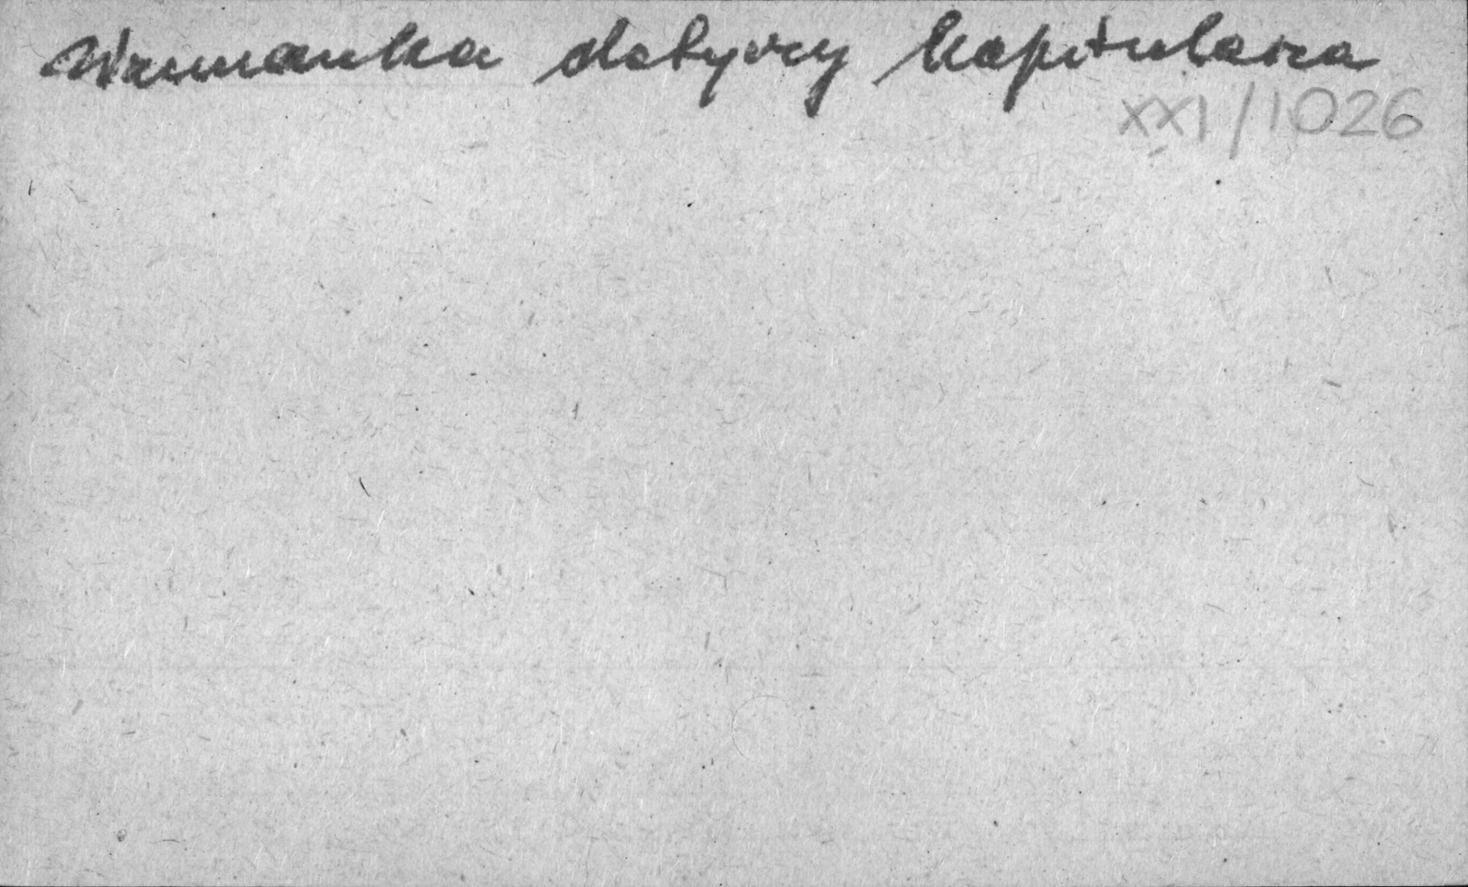 Wzmianka dotyczy Kapitularza
XXI/1026